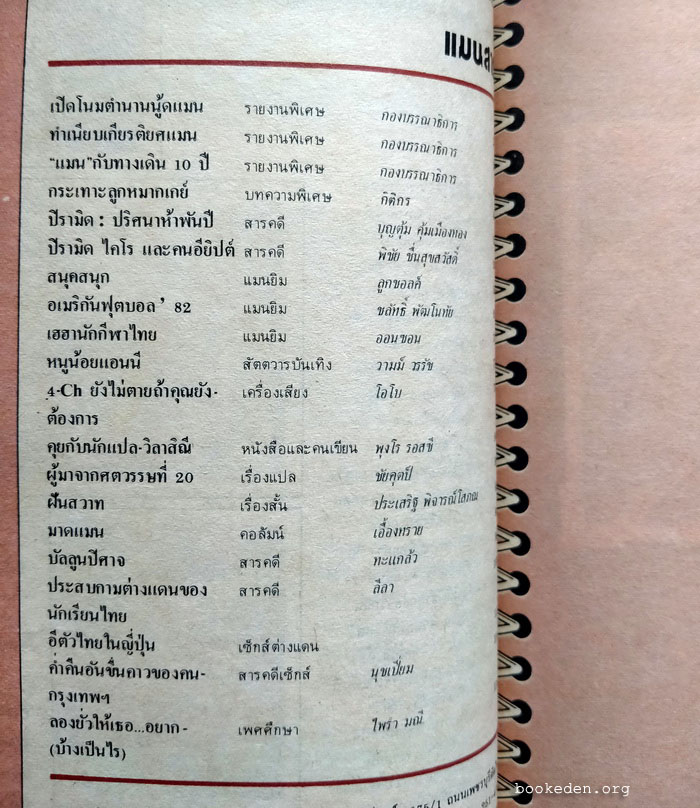 แมนส
เปิดโนมตำนานนู้ดแมน รายงานพิเศษ กองบรรณาธิการ
ทำเนียบเกียรติยศแมน รายงานพิเศษ กองบรรณาธิการ
“แมน”กับทางเดิน 10 ปี รายงานพิเศษ กองบรรณาธิการ
กระเทาะลูกหมากเกย์ บทความพิเศษ กิติกร
ปิรามิด : ปริศนาห้าพันปี สารคดี บุญตุ้ม คุ้มเมืองทอง
ปิรามิด ไคโร และคนอียิปต์ สารคดี พิชัย ชื่นสุขสวัสดิ์
สนุคสนุก แมนยิม ลูกขอลค์
อเมริกันฟุตบอล ’ 82 แมนยิม ชลัทธิ์ พัฒโนทัย
เฮฮานักกีฬาไทย แมนยิม ออนซอน
หนูน้อยแอนนี่ สัตตวารบันเทิง วามม์ วรรัช
4-Ch ยังไม่ตายถ้าคุณยัง- เครื่องเสียง โอโบ
ต้องการ
คุยกับนักแปล-วิลาสิณี หนังสือและคนเขียน พุงโร รอสซี
ผู้มาจากศตวรรษที่ 20 เรื่องแปล ชัยคุดป์
ฝันสวาท เรื่องสั้น ประเสริฐ พิจารณ์โสภณ
มาดแมน คอลัมน์ เอื้องทราย
บัลลูนปีศาจ สารคดี ทะแกล้ว
ประสบกามต่างแดนของ สารคดี ลีลา
นักเรียนไทย
อีตัวไทยในญี่ปุ่น เซ็กส์ต่างแดน
ค่ำคืนอันขื่นคาวของคน- สารคดีเซ็กส์ นุขเปี่ยม
กรุงเทพฯ
ลองยั่วให้เธอ...อยาก - เพศศึกษา ไพรำ มณี
(บ้างเป็นไร)
/1 ถนนเพชรบุรี
bookeden.org